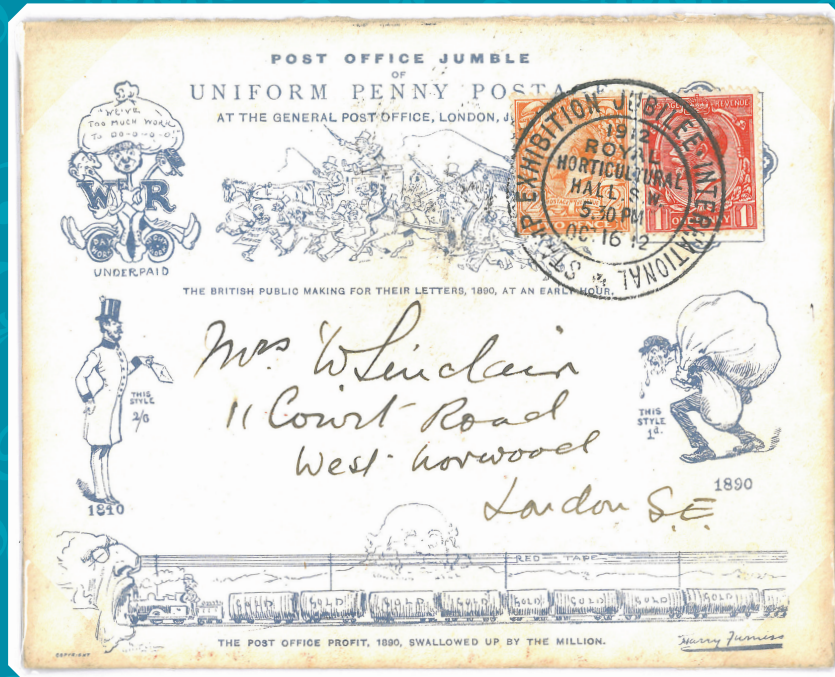 POST OFFICE JUMBLE
OF
UNIFORM PENNY
AT THE GENERAL POST OFFICE, LONDON,
"WE'VE
TOO MUCH WORK
TO DO-O-O-O!"
W R
UNDERPAID
STAMP EXHIBITION JUBILEE INTERNATIONAL
1912
ROYAL
HORTICULTURAL
HALL S.W.
5.30 PM
OC. 16 12
REVENUE
1 1
THE BRITISH PUBLIC MAKING FOR THEIR LETTERS, 1890, AT AN EARLY HOUR.
Mrs W Sinclair
11 Court Road
West Norwood
London S.E.
THIS
STYLE
2/6
1840
THIS
STYLE
1d.
1890
RED TAPE
GOLD GOLD GOLD GOLD GOLD GOLD GOLD GOLD
THE POST OFFICE PROFIT, 1890, SWALLOWED UP BY THE MILLION.
COPYRIGHT
Harry Furniss